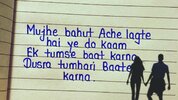 Mujhe bahut Ache lagte
hai ye do kaam
Ek tumse baat karna
Dusra tumhari Baate
karna.